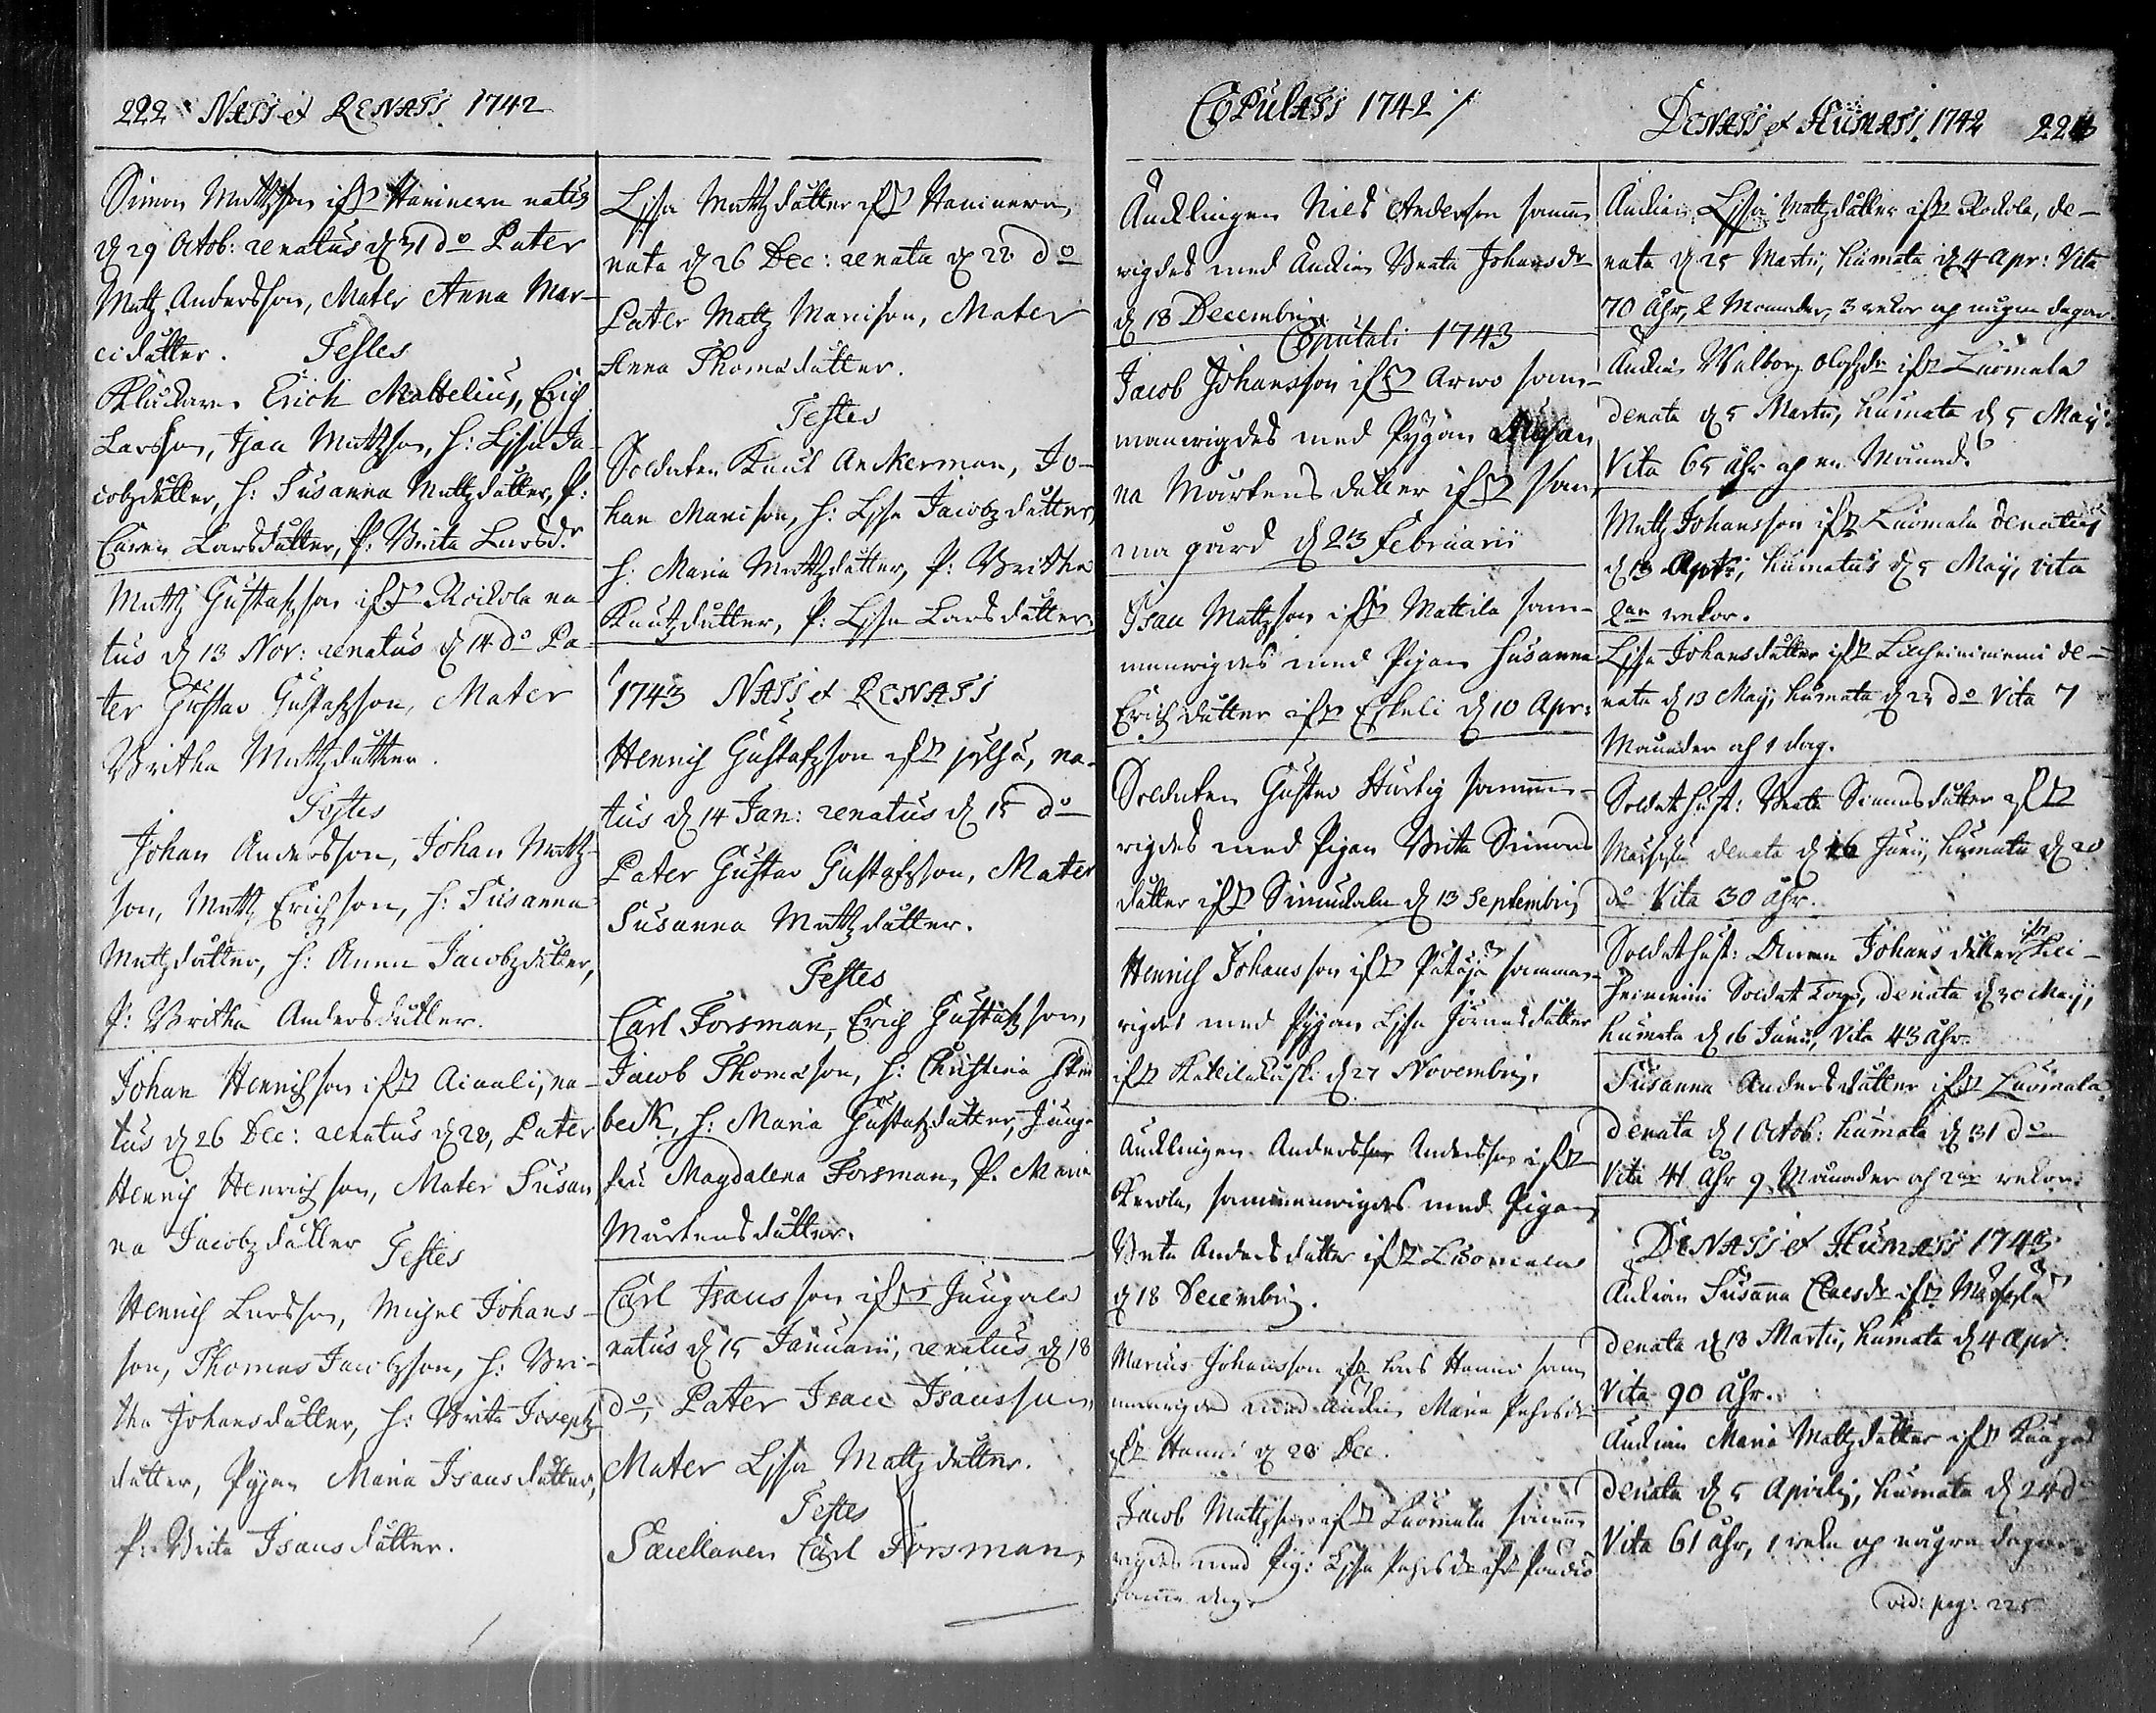 222 NATI et RENATI 1742
Simon Mattzson ifr Haninen natus
d 29 Octob: renatus d 31 do Pater
Mattz Andersson, Mater Anna Mar-
cidatter. Testes
Klockaren Erich Mattelius, Erich
Larsson, Isaa Mattzson, h: Lisa Ja-
cobzdatter, h: Susanna Mattzdatter, P:
Caren Larsdatter, P: Brita Larsdr
Mattz Gustafzson ifr Rockola na-
tus d 13 Nov: renatus d 14 do Pa-
ter Gustav Gustafzson, Mater
Britha Mattzdatter.
Testes
Johan Andersson, Johan Mattz-
son, Mattz Erichson, h: Susanna
Mattzdatter, h: Anna Jacobzdatter,
P: Britha Andersdatter.
Johan Henrichson ifr Aiaali, na-
tus d 26 Dec: renatus d 28, Pater
Henrich Henrichson, Mater Susan
na Jacobzdatter Testes
Henrich Larsson, Michel Johans-
son, Thomas Jacobzson, h: Bri-
tha Johansdatter, h: Brita Josephz
datter, Pigan Maria Isaasdatter,
P: Brita Isaasdatter.
Lisa Mattzdatter ifr Haninen,
nata d 26 Dec: renata d 28 do
Pater Mattz Marcison, Mater
Anna Thomadatter.
Testes
Soldaten Knut Anckerman, Jo-
han Marcison, h: Lisa Jacobzdatter,
h: Maria Mattzdatter, P: Britha
Knutzdatter, P: Lisa Larsdatter.
1743 NATI et RENATI
Henrich Gustafzson ifr Jylhä, na-
tus d 14 Jan: renatus d 15 do
Pater Gustav Gustafzson, Mater
Susanna Mattzdatter.
Testes
Carl Forsman, Erich Gustafzson,
Jacob Thomason, h: Christina
beck, h: Maria Gustafzdatter, Jung-
fru Magdalena Forsman, P. Maria
Mårtensdatter.
Carl Isaasson ifr Jungala
natus d 15 Januarii, renatus d 18
do, Pater Isaac Isaasson,
Mater Lisa Mattzdatter.
Testes
Sacellanen Carl Forsman,
COPULATI 1742
Äncklingen Niels Anderson samm
vigdes med Änckan Beata Johansdr
d 18 Decembris.
Copulati 1743
Jacob Johansson ifr Arwo sam-
manvigdes med Pygan Susan
na Mårtensdatter ifr sam
ma gård d 23 Februarii
Isaac Mattzson ifr Mattila sam-
manvigdes med Pigan Susanna
Erichsdatter ifr Eskeli d 10 Apr:
Soldaten Gustav Hurtig samman-
vigdes med Pigan Brita Simons
datter ifr Simuckala d 13 Septembris
Henrich Johansson ifr Pätäjä samman-
vigdes med Pygan Lisa Jöransdatter
ifr d 27 Novembris.
Äncklingen Anders Andersson ifr
Kerola, sammanvigdes med Pigan
Brita Andersdatter ifr Luomala
d 18 Decembris.
Marcus Johansson ifr Hanni sam
manvigdes med Änckan Maria Pehrsdr
ifr Hanni d 28 Dec.
Jacob Mattzson ifr Luomala samman
vigdes med Pig: Lisa Pehrsdr ifr
samma dag.
DENATI et HUMATI 1742 223
Änckan Lisa Mattzdatter ifr Rockola, de-
nata d 25 Martii, humata d 4 Apr: Vita
70 Åhr, 2 Månader, 3 veckor och några dagar.
Änckan Walborg Olofzdr ifr Luomala
denata d 5 Martii, humata d 5 Maij
Vita 65 åhr och en Månad.
Mattz Johansson ifr Luomala denatus
d 13 Apr:, humatus d 5 Maij, vita
2ne veckor.
Lisa Johansdatter ifr de-
nata d 13 Maij, humata d 23 do Vita 7
Månader och 1 dag.
Soldat hust: Beata Simonsdatter ifr
denata d 16 Junii, humata d 20
do Vita 30 åhr.
Soldat hust: Anna Johansdatter ifr Lui-
Soldat denata d 30 Maij,
humata d 16 Junii, Vita 43 åhr.
Susanna Andersdatter ifr Luomala,
denata d 1 Octob: humata d 31 do
Vita 41 åhr 9 Månader och 2ne veckor.
DENATI et HUMATI 1743
Änckan Susanna Claesdr ifr
denata d 13 Martii, humata d 4 Apr:
Vita 90 åhr.
Änckan Maria Mattzdatter ifr
denata d 5 Aprilis, humata d 24 do
Vita 61 åhr, 1 vecka och några dagar.
vid: pag: 225